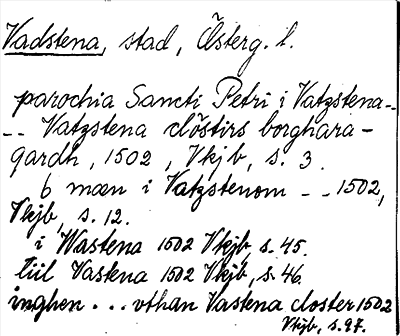 Vadstena, stad, Österg. l.
parochia Sancti Petri i Vatzstena --
-- Vatzstena clöstirs borghara-
gardh, 1502, Vkjb, s. 3.
6 mæn i Vatzstenom -- 1502,
Vkjb, s. 12.
i Wastena 1502 Vkjb, s. 45.
tiil Vastena 1502 Vkjb, s. 46.
inghen ... vthan Vastena closter 1502
Vkjb, s. 97.